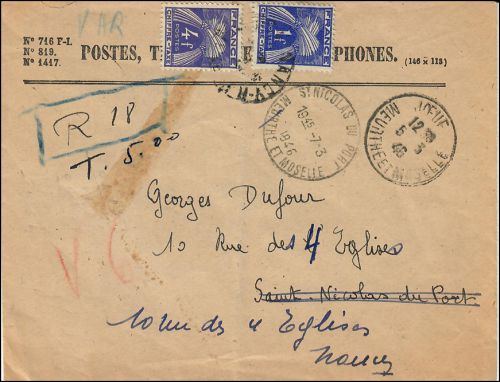 VAR
Nº 716 F-I.
Nº 819.
Nº 1417.
POSTES, T PHONES. (146 x 113)
FRANCE
4F
POSTES
CHIFFRE-TAXE
FRANCE
1F
POSTES
CHIFFRE-TAXE
NANCY
R 18
T. 5.00
ST NICOLAS DU PORT
19 45 -7-3
1946
MEURTHE ET MOSELLE
JŒUF
12
5-3
46
MEURTHE ET MOSELLE
Georges Dufour
10 Rue des 4 Eglises
Saint-Nicolas du Port
10 rue des 4 Eglises
Nancy